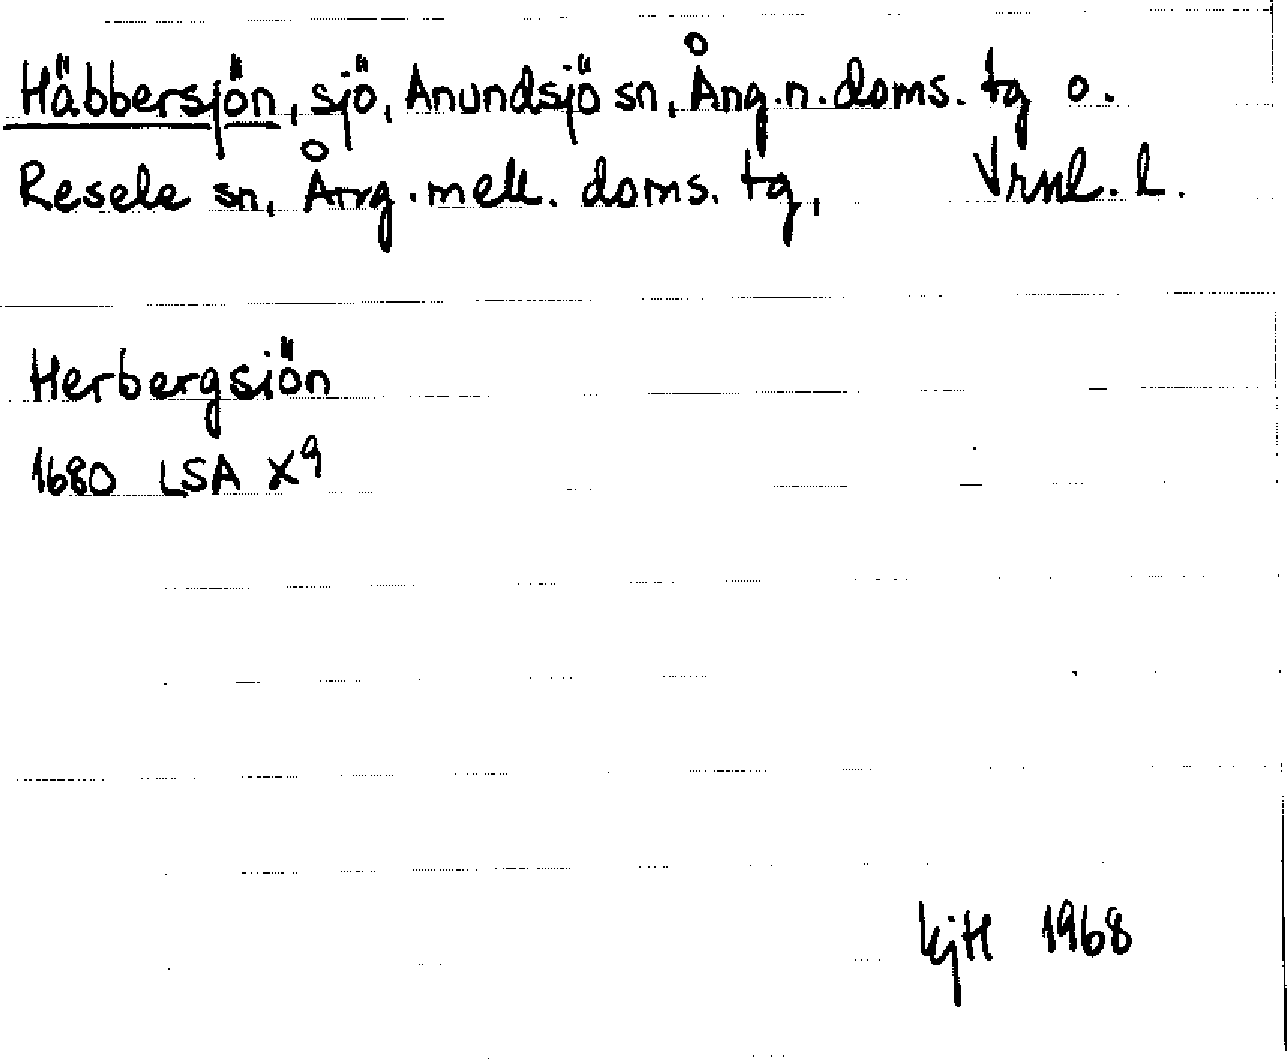 Häbbersjön, sjö, Anundsjö sn, Ång.n.doms. tg o.
Resele sn, Ång.mell. doms. tg, Vrnl. l.
Herbergsiön
1680 LSA X9
KjH 1968